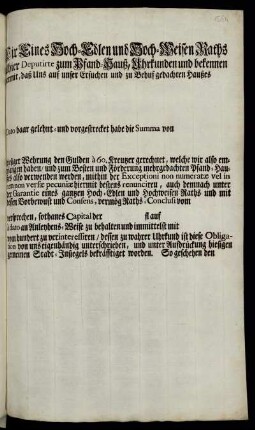 Wir Eines Hoch-Edlen und Hoch-Weisen Raths
Deputirte zum Pfand-Hauß, Uhrkunden und bekennen
hiermit, daß Uns auf unser Ersuchen und zu Behuf gedachten Haußes
Dato baar gelehnt- und vorgestrecket habe die Summa von
Wehrung den Gulden à 60. Kreutzer gerechnet, welche wir also em-
pfangen haben, und zum Besten und Förderung mehrgedachten Pfand-Hau-
ses also verwenden werden, mithin der Exceptioni non numeratæ vel in
rem non versæ pecuniæ hiermit bestens renunciren, auch demnach unter
der Garantie eines gantzen Hoch-Edlen und Hochweisen Raths und mit
dessen Vorbewust und Consens, vermög Raths-Conclusi vom
versprechen, sothanes Capital der fl auf
à dato an Anlehens-Weise zu behalten und immittelst mit
vom hundert zu verinteressiren, dessen zu wahrer Uhrkund ist diese Obliga-
tion von uns eigenhändig unterschrieben, und unter Ausdrückung hiesigen
gemeinen Stadt-Insiegels bekräfftiget worden. So geschehen den